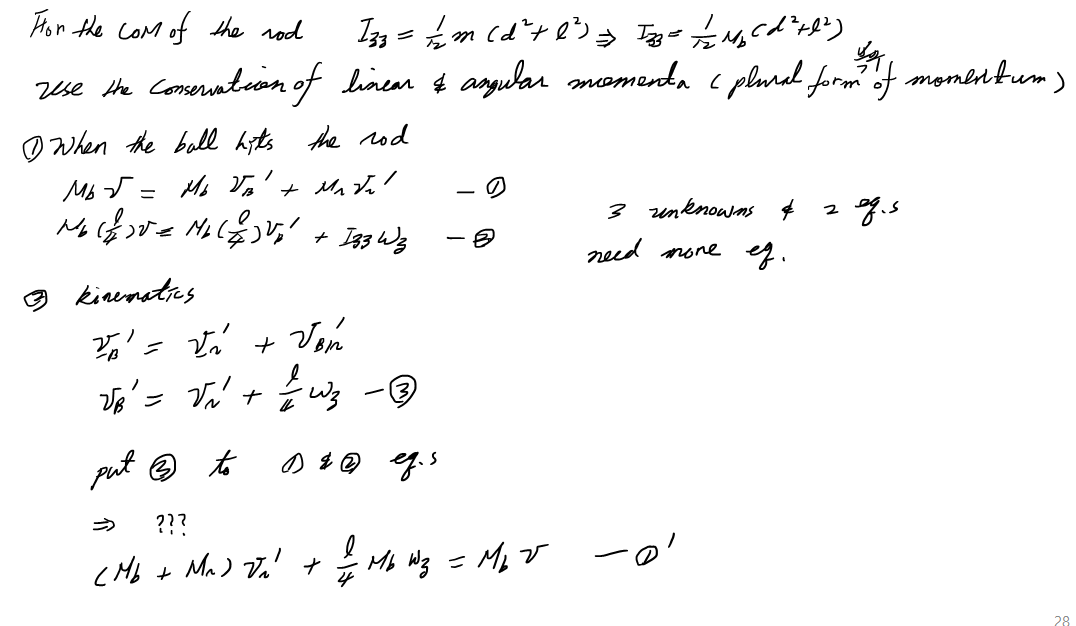 For the CoM of the rod I₃₃ = 1/12 m (d² + l²) ⇒ I₃₃ = 1/12 M_b (d² + l²)
Use the conservation of linear & angular momenta ( plural form of momentum )
① When the ball hits the rod
M_b v = M_b v_B' + M_r v_r' — ①
M_b (l/4) v = M_b (l/4) v_B' + I₃₃ ω₃ — ②
3 unknowns & 2 eq.s
need more eq.
② kinematics
v_B' = v_r' + v_B/r'
v_B' = v_r' + l/4 ω₃ — ③
put ③ to ① & ② eq.s
⇒ ???
(M_b + M_r) v_r' + l/4 M_b ω₃ = M_b v — ①'
28